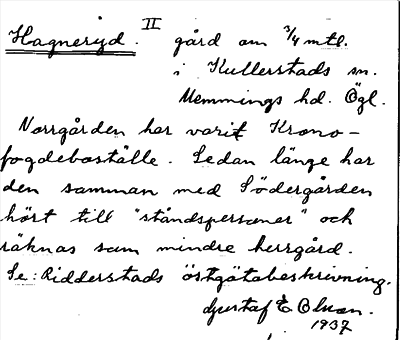 Hagneryd. II gård om 3/4 mtl.
i Kullerstads sn.
Memmings hd. Ögl.
Norrgården har varit Krono-
fogdeboställe. Sedan länge har
den samman med Södergården
hört till "ståndspersoner" och
räknas som mindre herrgård.
Se: Ridderstads östgötabeskrivning.
Gustaf E Olsson.
1937